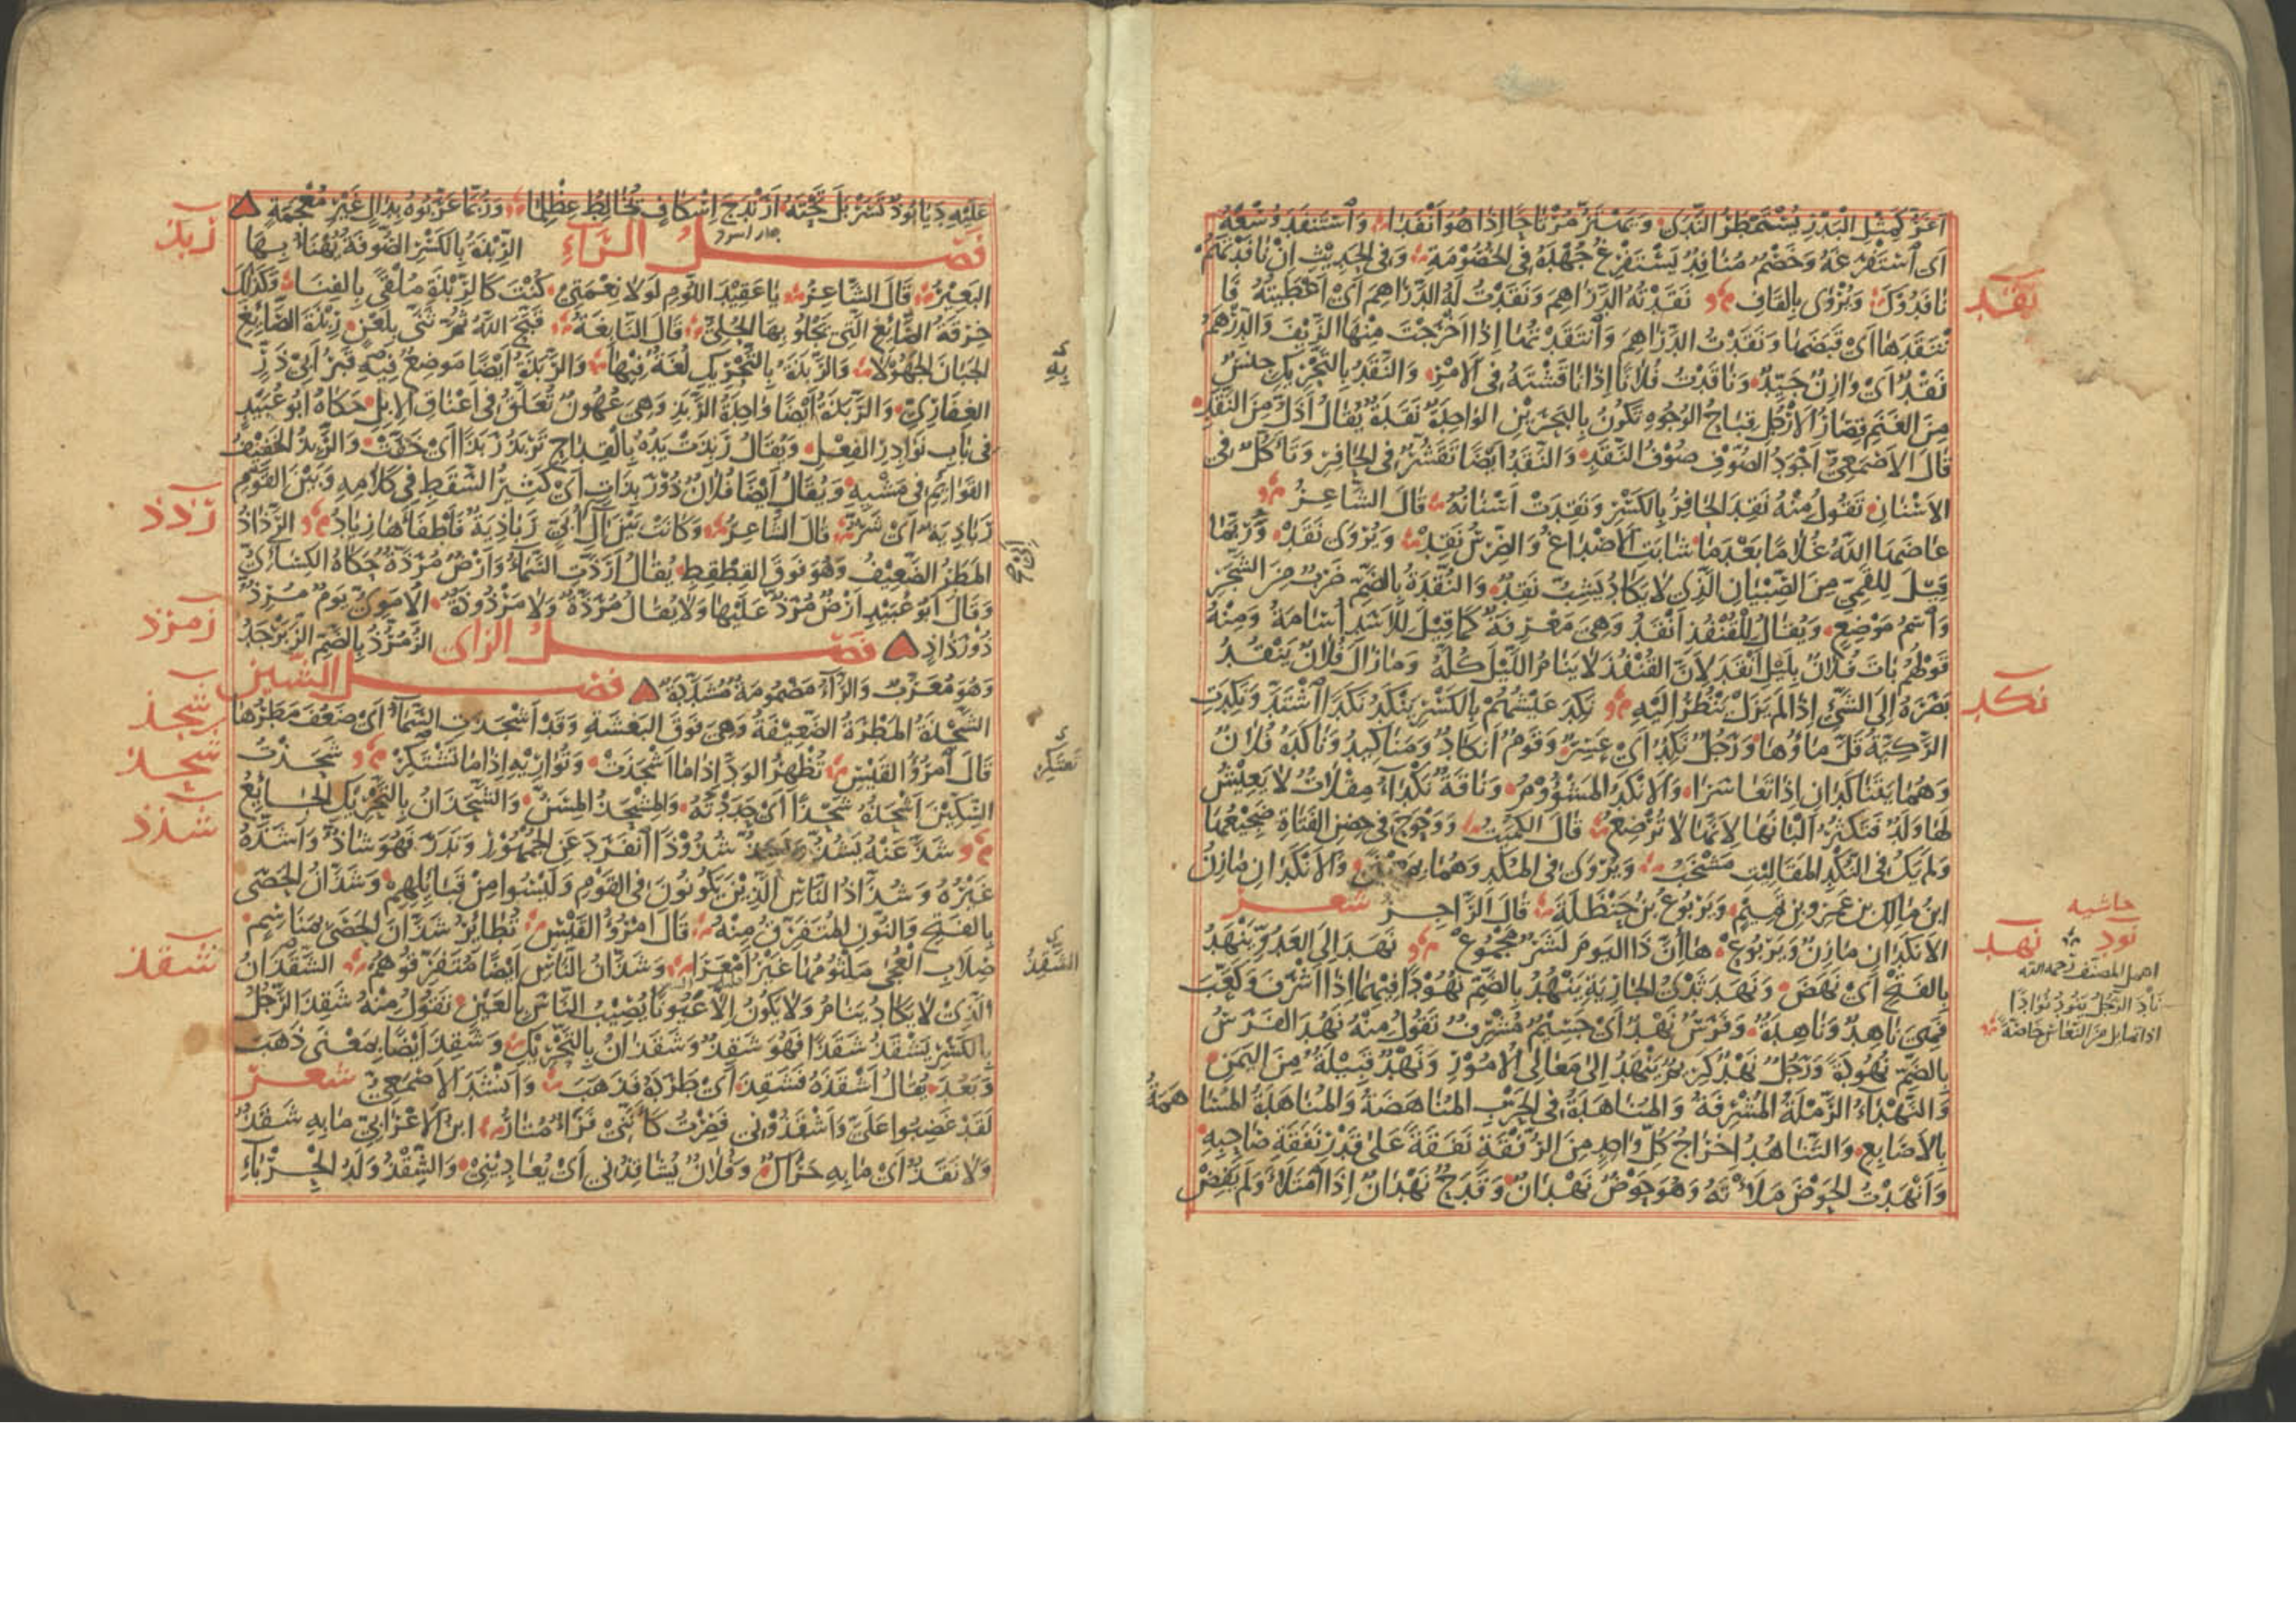 أغر كمثل البدر يستمطر الندى ويهتز مرتاحا إذا هو أنفدا واستنفد وسعه
أي استفرغه وخصم منافد يستفرغ جهده في الخصومة وفي الحديث إن نافدتهم
نافدوك ويروى بالقاف نقدته الدراهم ونقدت له الدراهم أي أعطيته فا
نتقدها أي قبضها ونقدت الدراهم وانتقدتها إذا أخرجت منها الزيف والدرهم
نقد أي وازن جيد وناقدت فلانا إذا ناقشته في الأمر والنقد بالتحريك جنس
من الغنم قصار الأرجل قباح الوجوه تكون بالبحرين الواحدة نقدة يقال أذل من النقد
قال الأصمعي أجود الصوف صوف النقد والنقد أيضا تقشر في الحافر وتأكل في
الأسنان تقول منه نقد الحافر بالكسر ونقدت أسنانه قال الشاعر
عاضها الله غلاما بعد ما شابت الأصداغ والضرس نقد ويروى نقد وربما
قيل للقمي من الصبيان الذي لا يكاد يشب نقد والنقدة بالضم ضرب من الشجر
واسم موضع ويقال للقنفذ أنقد وهي معرفة كما قيل للأسد أسامة ومنه
قولهم بات فلان بليل أنقد لأن القنفذ لا ينام الليل كله وما زال فلان ينقد
بصره إلى الشيء إذا لم يزل ينظر إليه نكد عيشهم بالكسر ينكد نكدا اشتد ونكدت
الركية قل ماؤها ورجل نكد أي عسر وقوم أنكاد ومناكيد وناكده فلان
وهما يتناكدان إذا تعاسرا والأنكد المشؤوم وناقة نكداء مقلات لا يعيش
لها ولد فتكثر ألبانها لأنها لا ترضع قال الكميت ووحوح في حضن الفتاة ضجيعها
ولم يك في النكد المقاليت مشخب ويروى في المكد وهما بمعنى والأنكدان مازن
ابن مالك بن عمرو بن تميم ويربوع بن حنظلة قال الراجز شعر
الأنكدان مازن ويربوع ها إن ذا اليوم لشر مجموع نهد إلى العدو ينهد
بالفتح أي نهض ونهد ثدي الجارية ينهد بالضم نهودا فيهما إذا أشرف وكعب
فهي ناهد وناهدة وفرس نهد أي جسيم مشرف تقول منه نهد الفرس
بالضم نهودة ورجل نهد كريم ينهد إلى معالي الأمور ونهد قبيلة من اليمن
والنهداء الرملة المشرفة والمناهدة في الحرب المناهضة والمناهدة المساهمة
بالأصابع والتناهد إخراج كل واحد من الرفقة نفقة على قدر نفقة صاحبه
وأنهدت الحوض ملأته وهو حوض نهدان وقدح نهدان إذا امتلأ ولم يفض
نقد
نكد
حاشيه
نود
نهد
أهمل المصنف رحمه الله
ناد الرجل ينود نوادا
إذا تمايل من النعاس خاصة
عليه ديابود تسربل تحته أرندج إسكاف يخالط عظلما وربما عربوه بدال غير معجمة
فصل الراء الربذة بالكسر الصوفة يهنأ بها
البعير قال الشاعر يا عقيد اللؤم لولا نعمتي كنت كالربذة ملقى بالفناء وكذلك
خرقة الصائغ التي يجلو بها الحلي قال النابغة قبح الله ثم ثنى بلعن ربذة الصائغ
الجبان الجهولا والربذة بالتحريك لغة فيها والربذة أيضا موضع فيه قبر أبي ذر
الغفاري والربذة أيضا واحدة الربذ وهي عهون تعلق في أعناق الإبل حكاه أبو عبيد
في باب نوادر الفعل ويقال ربذت يده بالقداح تربذ ربذا أي خفت والربذ الخفيف
القوائم في مشيه ويقال أيضا فلان ذو ربذات أي كثير السقط في كلامه وبين القوم
رباذية أي شر قال الشاعر وكانت بين آل أبي رباذية فأطفأها زياد الرذاذ
المطر الضعيف وهو فوق القطقط يقال أرذت السماء وأرض مرذة حكاه الكسائي
وقال أبو عبيد أرض مرذ عليها ولا يقال مرذة ولا مرذوذة الأموي يوم مرذ
ذو رذاذ فصل الزاي الزمرذ بالضم الزبرجد
وهو معرب والراء مضمومة مشددة فصل الشين
الشجذة المطرة الضعيفة وهي فوق البغشة وقد أشجذت السماء أي ضعف مطرها
قال امرؤ القيس تظهر الود إذا ما أشجذت وتواريه إذا ما تشتكر شحذت
السكين أشحذه شحذا أي حددته والمشحذ المسن والشحذان بالتحريك الجائع
شذ عنه يشذ ويشذ شذوذا انفرد عن الجمهور وندر فهو شاذ وأشذه
غيره وشذاذ الناس الذين يكونون في القوم وليسوا من قبائلهم وشذان الحصى
بالفتح والنون المتفرق منه قال امرؤ القيس تطاير شذان الحصى بمناسم
صلاب العجى ملثومها غير أمعرا وشذان الناس أيضا متفرقوهم الشقذان
الذي لا يكاد ينام ولا يكون إلا عيونا يصيب الناس بالعين تقول منه شقذ الرجل
بالكسر يشقذ شقذا فهو شقذ وشقذان بالتحريك وشقذ أيضا بمعنى ذهب
وبعد يقال أشقذه فشقذ أي طرده فذهب وأنشد الأصمعي شعر
لقد غضبوا علي وأشقذوني فصرت كأنني فرأ متار ابن الأعرابي ما به شقذ
ولا نقذ أي ما به حراك وفلان يشاقذني أي يعاديني والشقذ ولد الحرباء
ربذ
رذذ
زمرذ
شجذ
شحذ
شذذ
شقذ
به
تعتكر
الشقذ